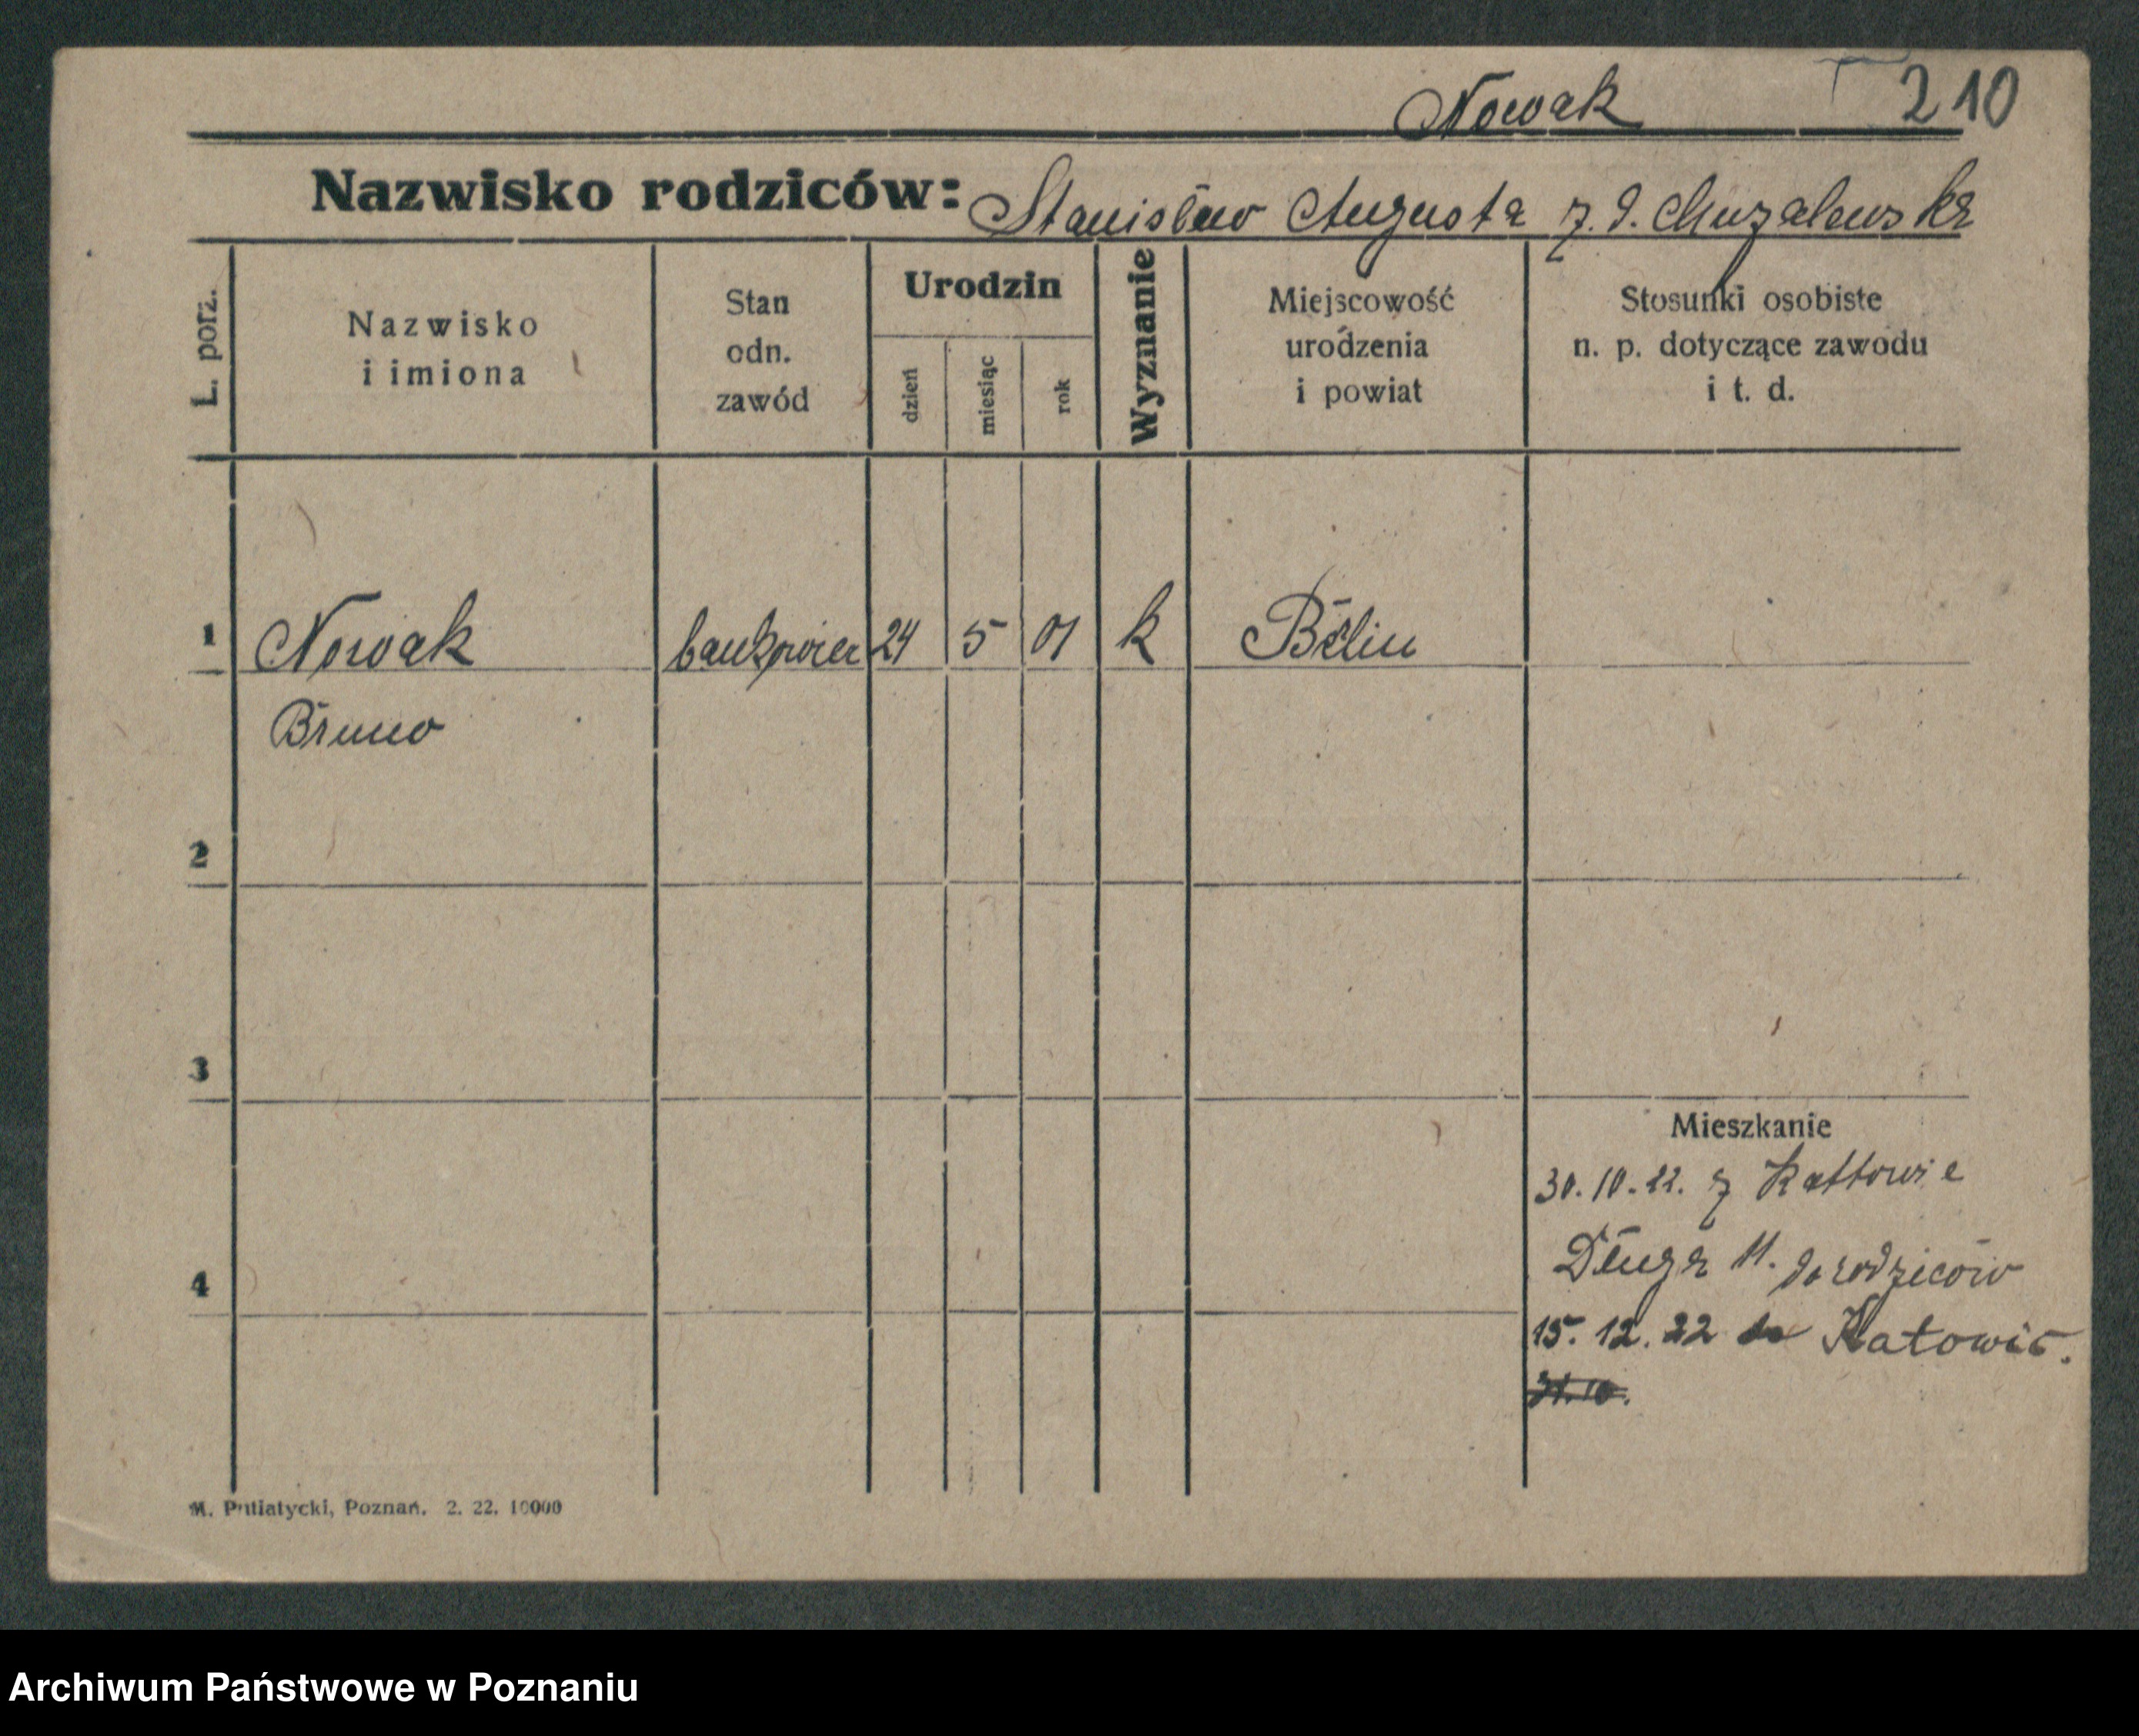 Nowak 210
Nazwisko rodziców: Stanisław Augusta z d. Muzalewska
L. porz.
Nazwisko
i imiona
Stan
odn.
zawód
Urodzin
dzień
miesiąc
rok
Wyznanie
Miejscowość
urodzenia
i powiat
Stosunki osobiste
n. p. dotyczące zawodu
i t. d.
1 Nowak bankowiec 24 5 01 k
Bruno
2
3
4
Mieszkanie
30.10.22. z Kattowic
Długa 11. do rodziców
15. 12. 22 do Katowic.
31.10.
M. Putiatycki, Poznań. 2. 22. 10000
Archiwum Państwowe w Poznaniu